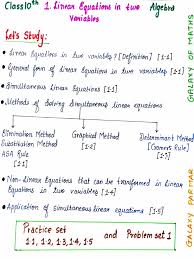 Class10th 1. Linear Equations in two Algebra
Variables
Let's Study:
• Linear Equations in two variables? [Definition] [1·1]
• General form of Linear Equation in two variables [1·1]
• Simultaneous Linear Equations [1·1]
• Methods of Solving Simultaneous linear equations
Elimination Method
Substitution Method
ASA Rule
[1·1]
Graphical Method
[1·2]
Determinant Method
[Cramer's Rule]
[1·3]
• Non-Linear Equations that can be transformed in Linear
Equations in two variables [1·4]
• Application of Simultaneous linear equations [1·5]
Practice set
1·1, 1·2, 1·3, 1·4, 1·5
and Problem set 1
GALAXY OF MATHS
GALAXY PARMAR